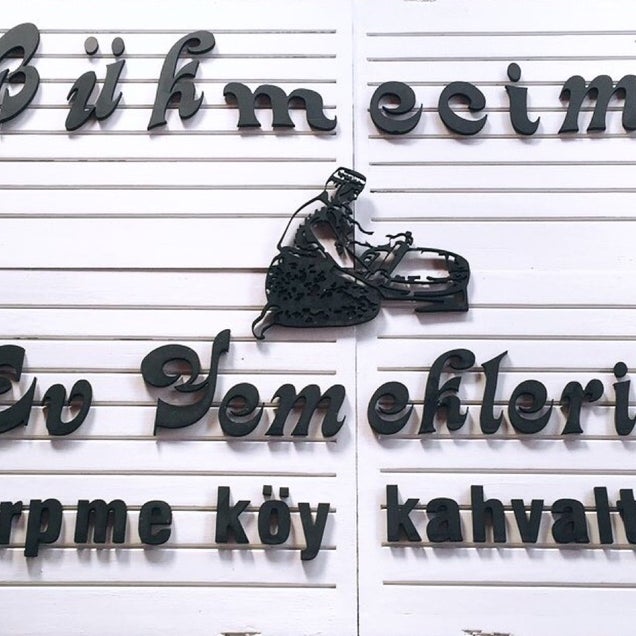 Bükmecim
Ev Yemekleri
rpme köy kahvalt